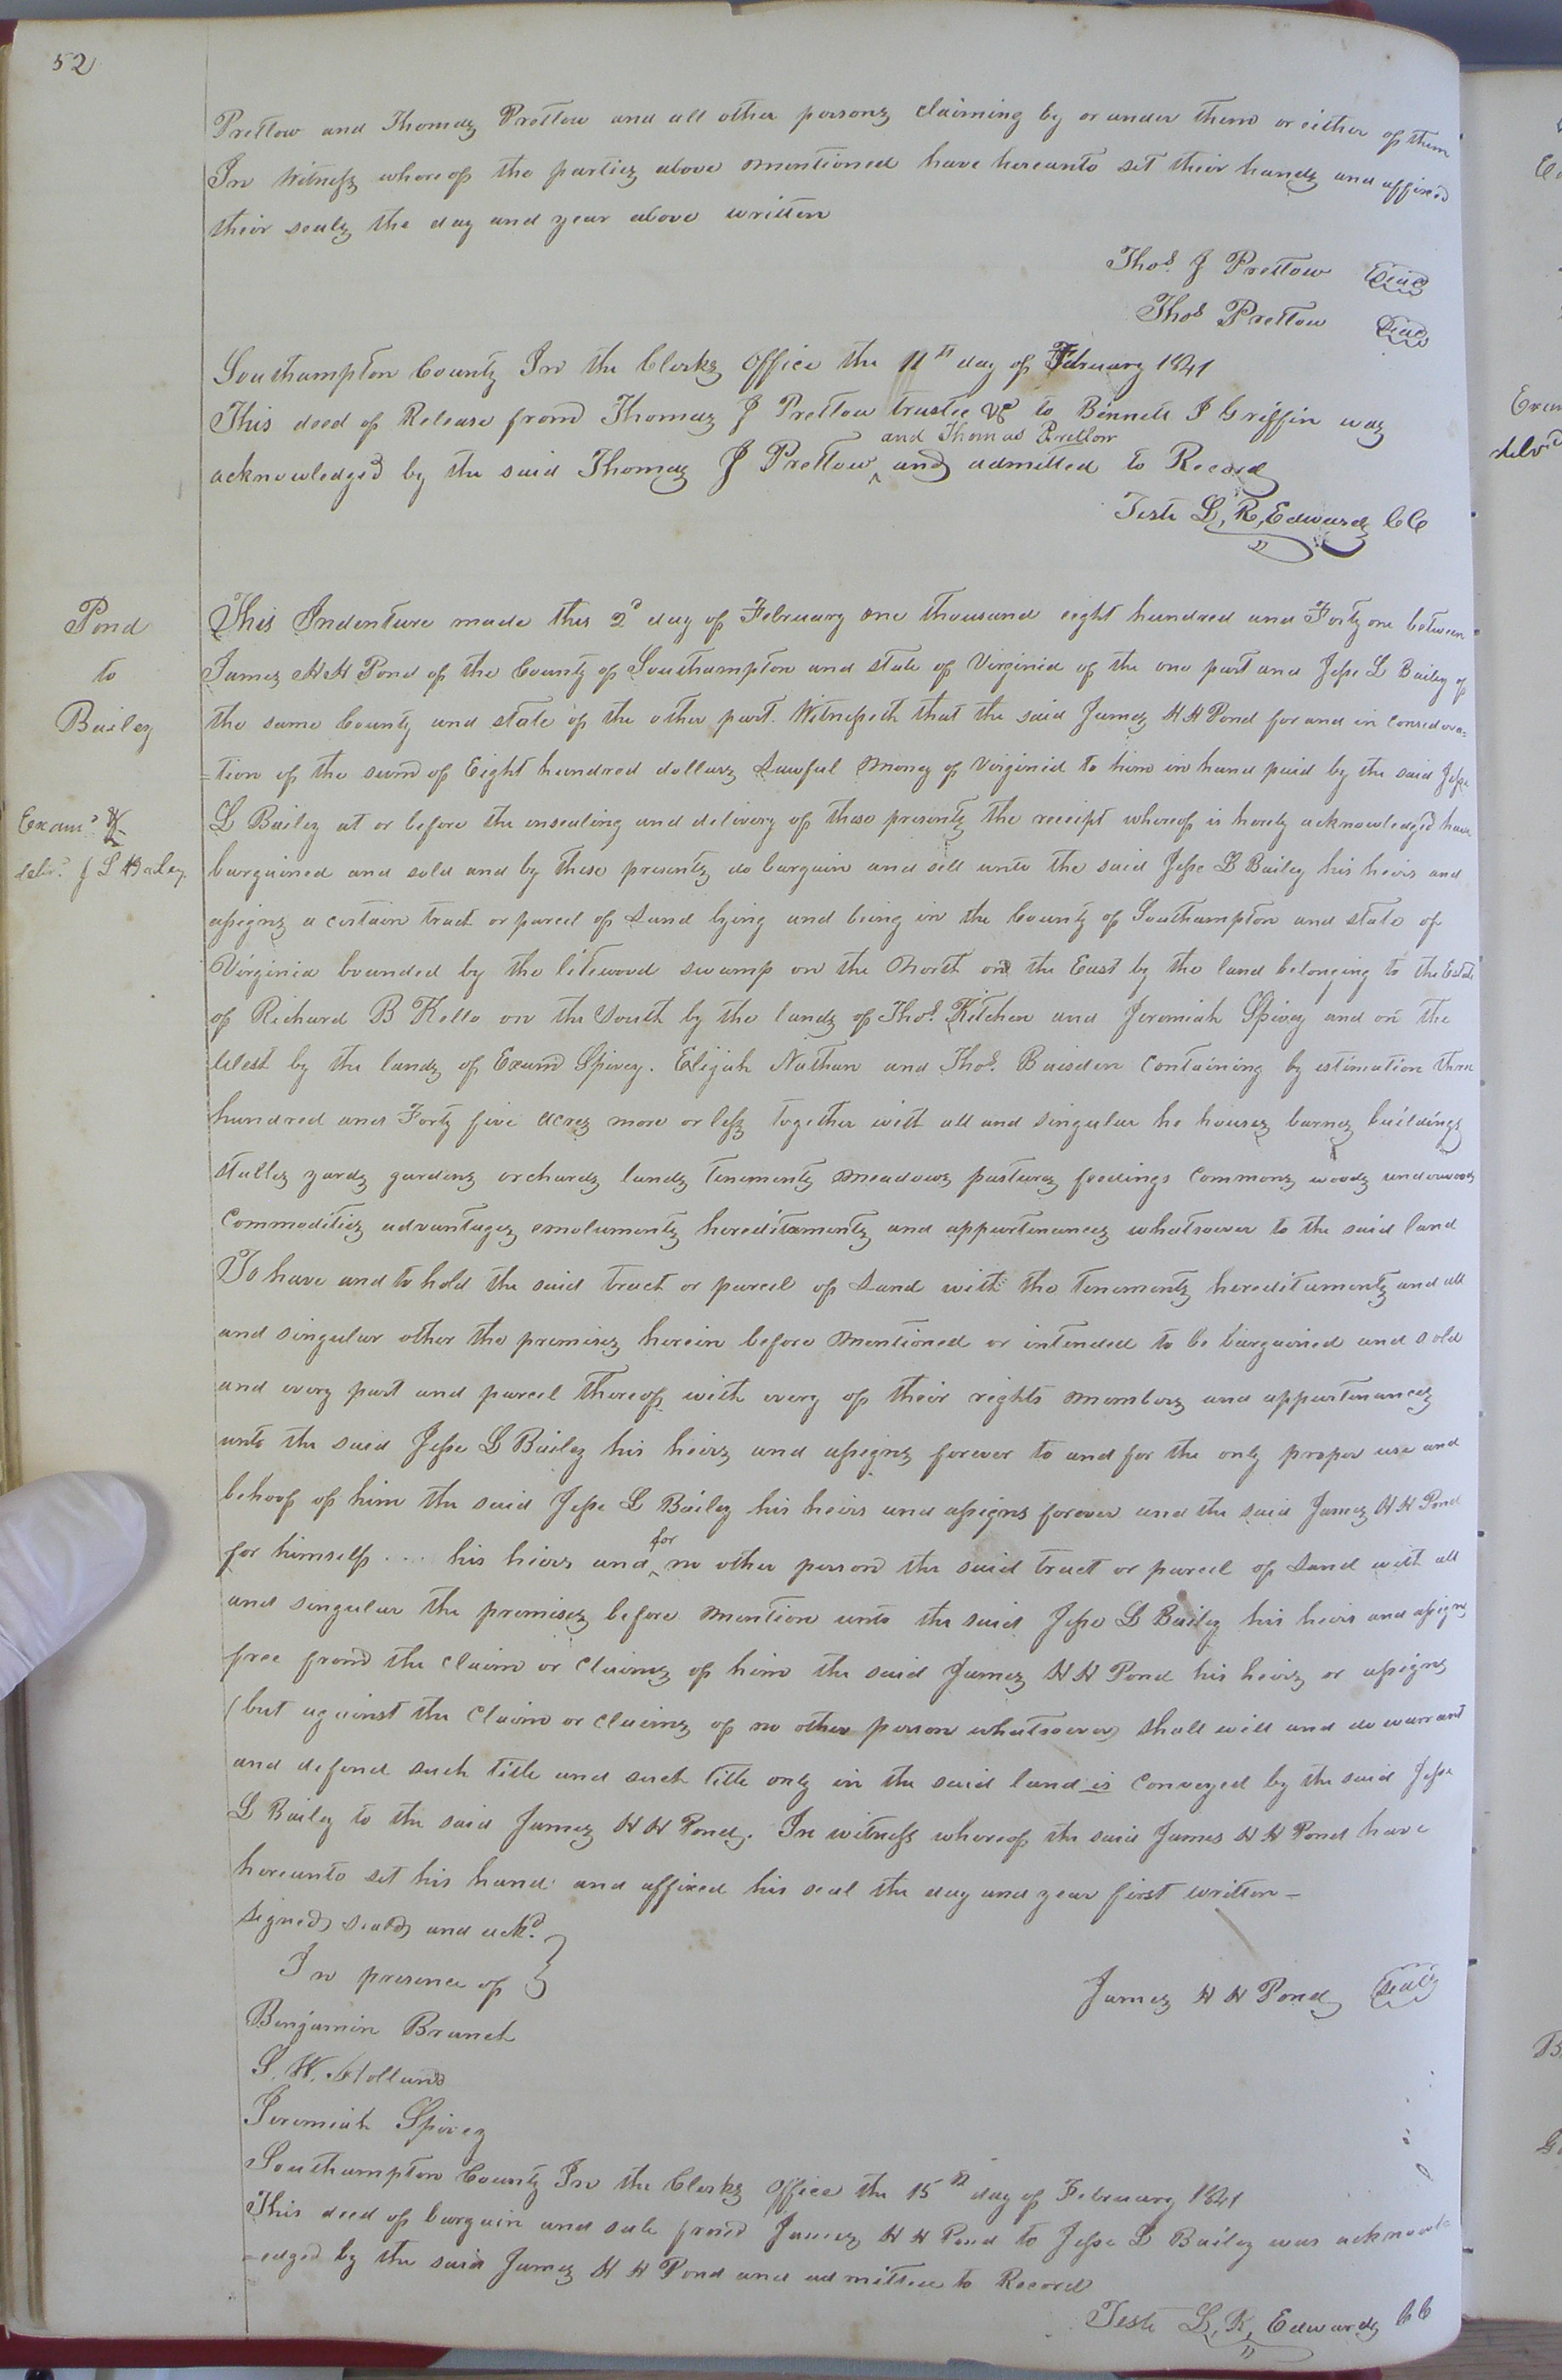 52
Prettow and Thomas Prettow and all other persons claiming by or under them or either of them
In Witness whereof the parties above mentioned have hereunto set their hands and affixed
their seals the day and year above written
Thos. J Prettow Seal
Thos Prettow Seal
Southampton County In the Clerks Office the 11th day of February 1841
This deed of Release from Thomas J Prettow trustee &c to Binnett J Griffin was
and Thomas Prettow
acknowledged by the said Thomas J Prettow ^ and admitted to Record
Teste L, R, Edwards CC
Pond
to
Bailey
Examd.
deld. J L Bailey
This Indenture made this 2d day of February one thousand eight hundred and Forty one between
James H H Pond of the County of Southampton and state of Virginia of the one part and Jesse L Bailey of
the same County and state of the other part. Witnesseth that the said James H H Pond for and in considera=
=tion of the sum of Eight hundred dollars Lawful money of Virginia to him in hand paid by the said Jesse
L Bailey at or before the ensealing and delivery of these presents the receipt whereof is hereby acknowledged have
bargained and sold and by these presents do bargain and sell unto the said Jesse L Bailey his heirs and
assigns a certain tract or parcel of Land lying and being in the County of Southampton and state of
Virginia bounded by the litewood swamp on the North on the East by the land belonging to the Estate
of Richard B Kello on the South by the lands of Thos. Kitchen and Jeremiah Spivey and on the
West by the lands of Exum Spivey. Elijah Nathan and Thos. Baisden Containing by estimation three
hundred and Forty five acres more or less together with all and singular he houses barns buildings
stables yards gardens orchards lands tenements meadows pastures feedings Commons woods underwoods
Commodities advantages emoluments hereditaments and appurtenances whatsoever to the said land
To have and to hold the said tract or parcel of Land with the tenements hereditaments and all
and singular other the premises herein before mentioned or intended to be bargained and sold
and every part and parcel thereof with every of their rights members and appurtenances
unto the said Jesse L Bailey his heirs and assigns forever to and for the only proper use and
behoof of him the said Jesse L Bailey his heirs and assigns forever and the said James H H Pond
for
for himself .... his heirs and ^ no other person the said tract or parcel of Land with all
and singular the premises before mention unto the said Jesse L Bailey his heirs and assigns
free from the claim or claims of him the said James H H Pond his heirs or assigns
(but against the Claim or claims of no other person whatsoever) shall will and do warrant
and defend such title and such title only in the said land is conveyed by the said Jesse
L Bailey to the said James H H Pond. In witness whereof the said James H H Pond have
hereunto set his hand and affixed his seal the day and year first written –
signed seald and ackd.
In presence of }
James H H Pond Seal
Benjamin Branch
S. W. Holland
Jeremiah Spivey
Southampton County In the Clerks Office the 15th day of February 1841
This deed of bargain and sale from James H H Pond to Jesse L Bailey was acknowl=
=edged by the said James H H Pond and admitted to Record
Teste L, R, Edwards CC
Exam
delvd